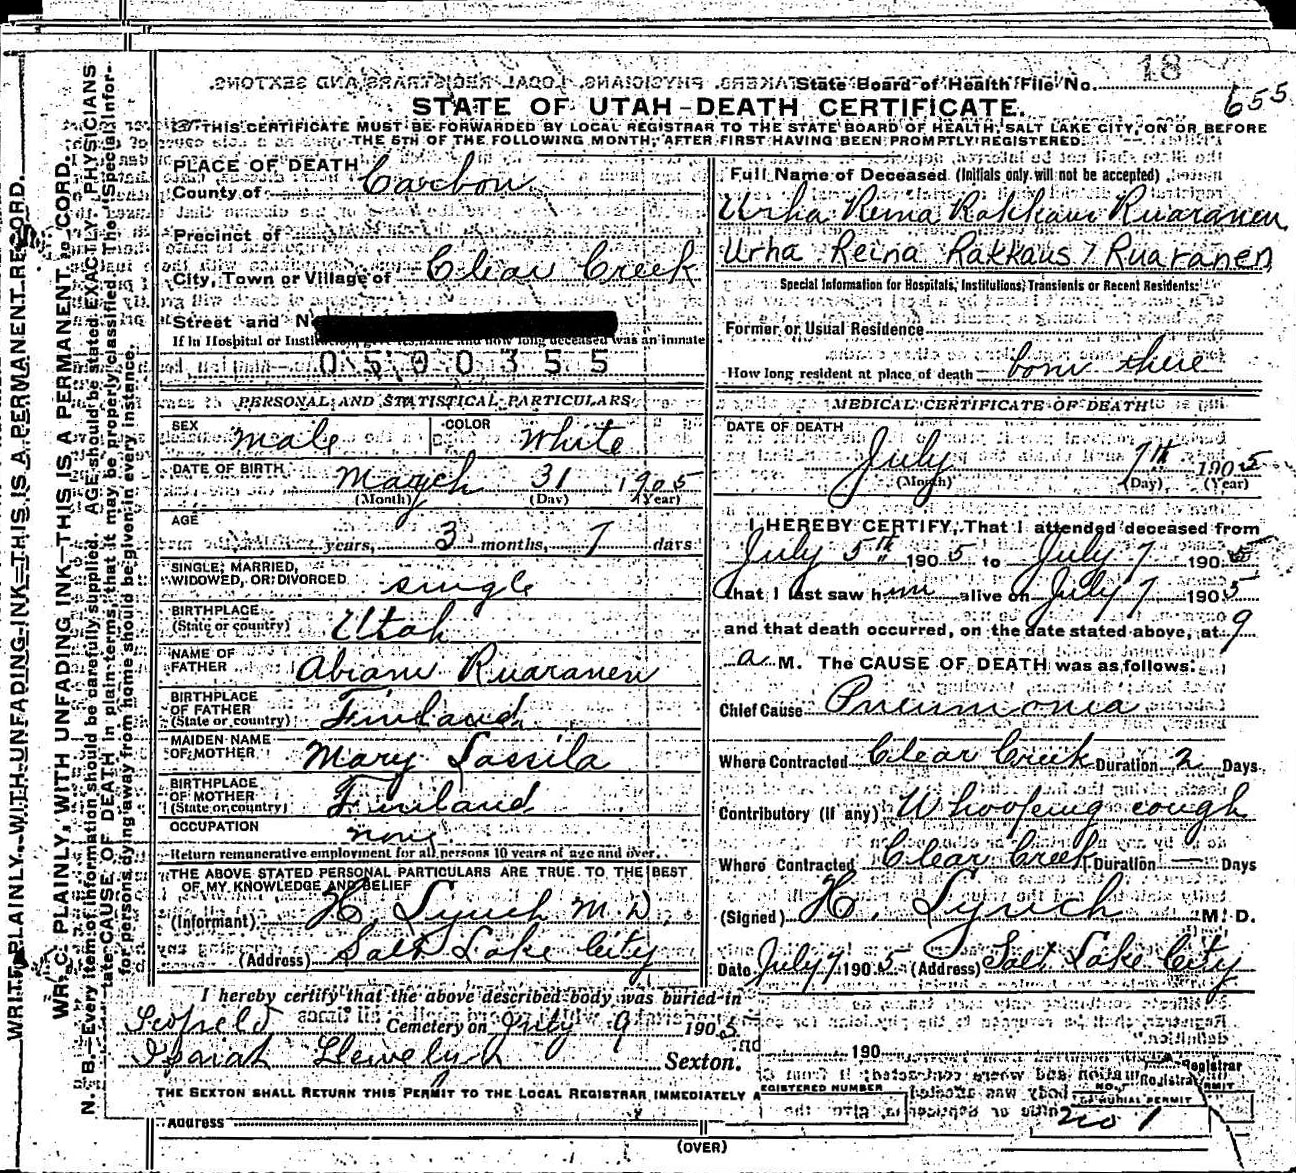 18
State Board of Health File No.
655
STATE OF UTAH-DEATH CERTIFICATE.
THIS CERTIFICATE MUST BE FORWARDED BY LOCAL REGISTRAR TO THE STATE BOARD OF HEALTH, SALT LAKE CITY, ON OR BEFORE
THE 5TH OF THE FOLLOWING MONTH, AFTER FIRST HAVING BEEN PROMPTLY REGISTERED.
WRITE PLAINLY WITH UNFADING INK-THIS IS A PERMANENT RECORD.
PLAINLY, WITH UNFADING INK-THIS IS A PERMANENT CORD.
N. B.-Every item of information should be carefully supplied. AGE should be stated EXACTLY. PHYSICIANS
state CAUSE OF DEATH in plain terms, that it may be properly classified. The "Special Infor-
for persons dying away from home should be given in every instance.
PLACE OF DEATH
County of Carbon
Precinct of
City, Town or Village of Clear Creek
Street and N
If in Hospital or was an inmate
0500355
PERSONAL AND STATISTICAL PARTICULARS
SEX Male COLOR White
DATE OF BIRTH March 31 1905
(Month) (Day) (Year)
AGE years, 3 months, 7 days
SINGLE, MARRIED,
WIDOWED, OR DIVORCED single
BIRTHPLACE
(State or country) Utah
NAME OF
FATHER Abiam Ruaranen
BIRTHPLACE
OF FATHER
(State or country) Finland
MAIDEN NAME
OF MOTHER Mary Lassila
BIRTHPLACE
OF MOTHER
(State or country) Finland
OCCUPATION none
Return remunerative employment for all persons 10 years of age and over.
THE ABOVE STATED PERSONAL PARTICULARS ARE TRUE TO THE BEST
OF MY KNOWLEDGE AND BELIEF
(Informant) H. Lynch M D
(Address) Salt Lake City
I hereby certify that the above described body was buried in
Scofield Cemetery on July 9 1905
Isaiah Llewelyn Sexton.
THE SEXTON SHALL RETURN THIS PERMIT TO THE LOCAL REGISTRAR IMMEDIATELY A
Address
Full Name of Deceased (Initials only will not be accepted)
Urha Reina Rakkaus Ruaranen
Urha Reina Rakkaus / Ruaranen
Special Information for Hospitals, Institutions, Transients or Recent Residents:
Former or Usual Residence
How long resident at place of death born there
MEDICAL CERTIFICATE OF DEATH
DATE OF DEATH
July 7th 1905
(Month) (Day) (Year)
I HEREBY CERTIFY, That I attended deceased from
July 5th 1905 to July 7 1905
that I last saw him alive on July 7 1905
and that death occurred, on the date stated above, at 9
a M. The CAUSE OF DEATH was as follows:
Chief Cause Pneumonia
Where Contracted Clear Creek Duration 2 Days
Contributory (if any) Whooping cough
Where Contracted Clear Creek Duration — Days
(Signed) H. Lynch M. D.
Date July 7 1905 (Address) Salt Lake City
190
Registrar
REGISTERED NUMBER
BURIAL PERMIT
no 1
(OVER)